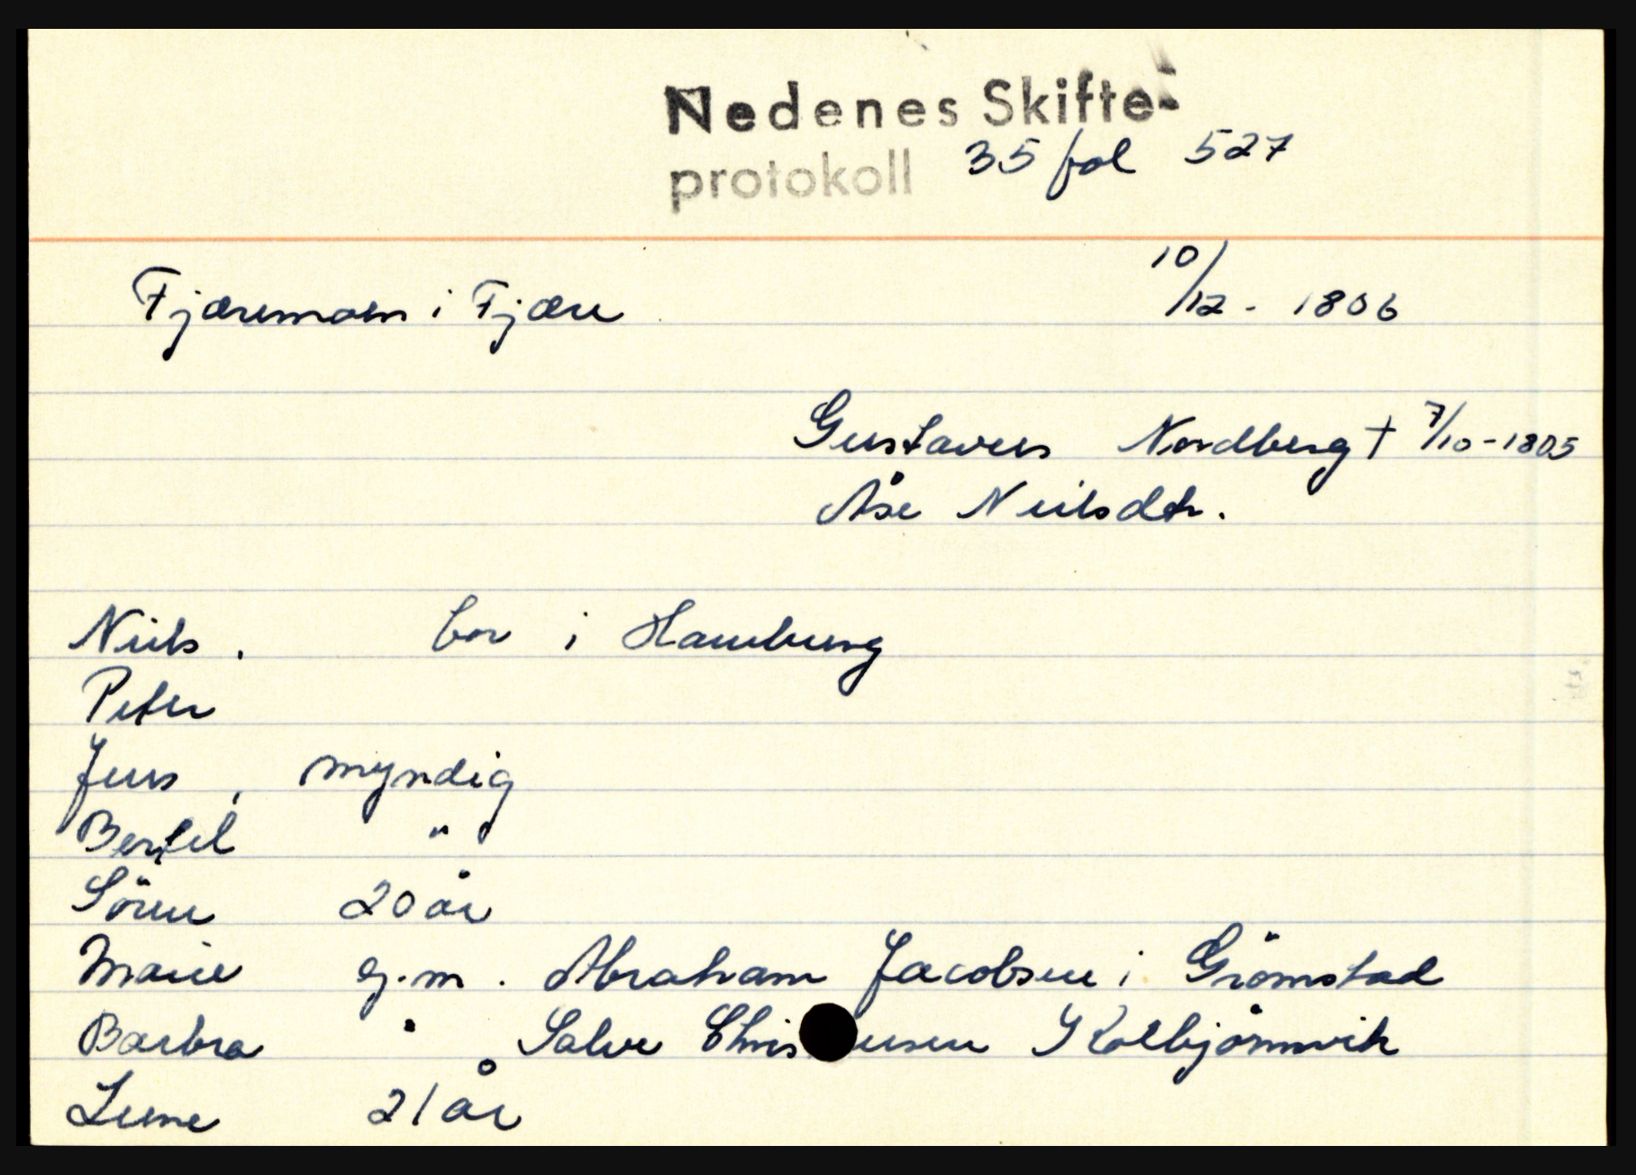 Nedenes Skifte-
protokoll 35 fol 527
Fjæremoen i Fjære 10/12 - 1806
Gustavus Nordberg † 7/10-1805
Åse Neilsdtr.
Niels. bor i Hamburg
Peter
Jens, myndig
Bertel "
Sören 20 år
Marie g.m. Abraham Jacobsen i Grömstad
Barbra " Salve Chris ensen Kolbjörnsvik
Lene 21 år